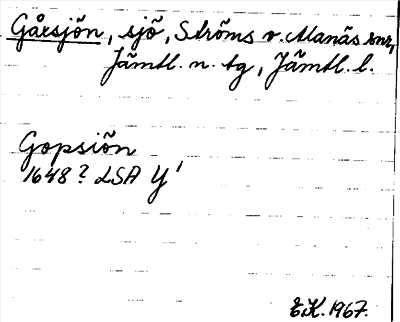 Gåxsjön, sjö, Ströms o. Alanäs snr,
Jämtl. n. tg, Jämtl. l.
Gopsiön
1648? LSA Y'
E.K. 1967.